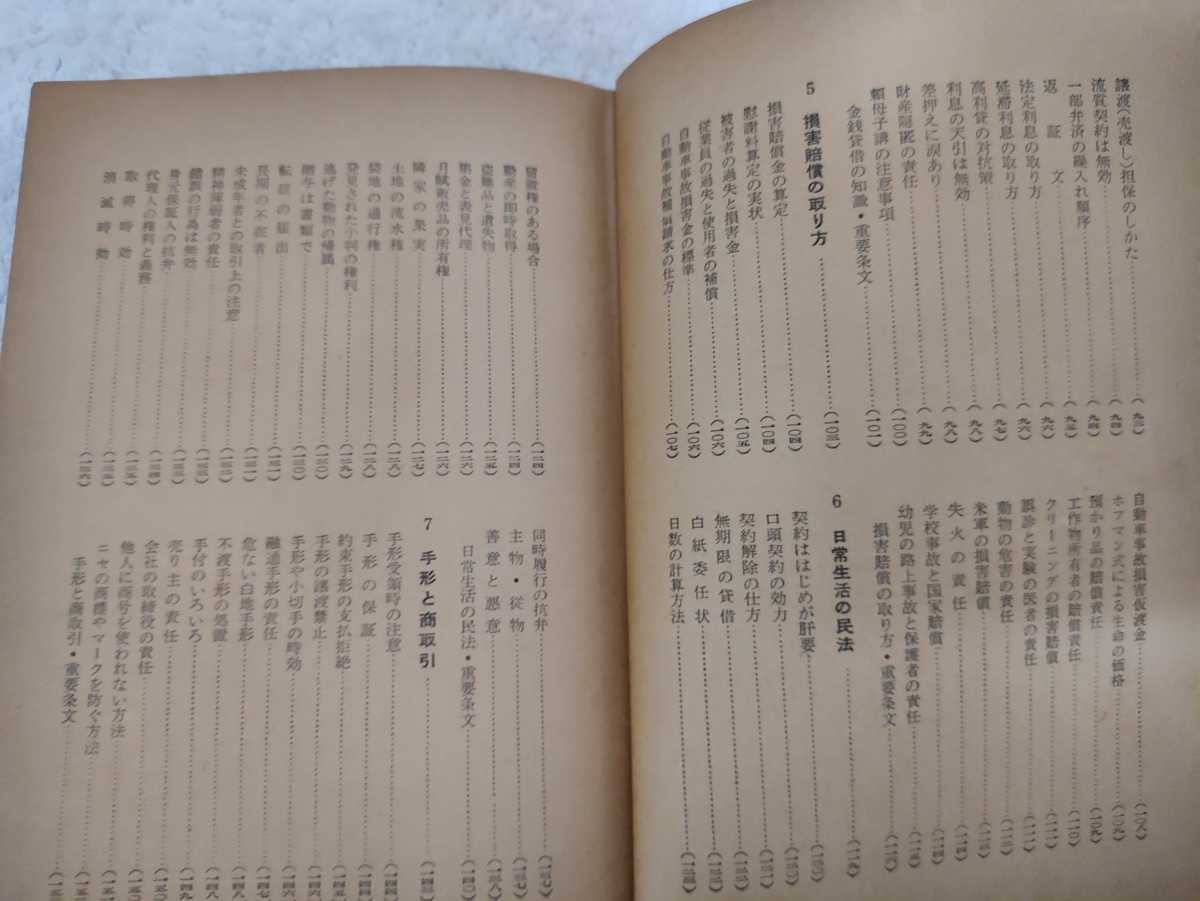 譲渡(売渡し)担保のしかた……(九三)
流質契約は無効……(九四)
一部弁済の繰入れ順序……(九五)
返証文……(九六)
法定利息の取り方……(九六)
延滞利息の取り方……(九七)
高利貸の対抗策……(九八)
利息の天引は無効……(九八)
差押えに涙あり……(九九)
財産隠匿の責任……(一〇〇)
頼母子講の注意事項……(一〇一)
金銭貸借の知識・重要条文
5 損害賠償の取り方……(一〇三)
損害賠償金の算定……(一〇四)
慰謝料算定の実状……(一〇四)
被害者の過失と損害金……(一〇五)
従業員の過失と使用者の補償……(一〇六)
自動車事故損害金の標準
自動車事故補償請求の仕方……(一〇七)
自動車事故損害仮渡金……(一〇八)
ホフマン式による生命の価格……(一〇九)
預かり品の賠償責任……(一〇九)
工作物所有者の賠償責任……(一一〇)
クリーニングの損害賠償……(一一一)
誤診と実験の医者の責任……(一一二)
動物の危害の責任……(一一二)
米軍の損害賠償……(一一三)
失火の責任……(一一四)
学校事故と国家賠償……(一一四)
幼児の路上事故と保護者の責任……(一一五)
損害賠償の取り方・重要条文……(一一六)
6 日常生活の民法……(一一九)
契約ははじめが肝要……(一二〇)
口頭契約の効力……(一二〇)
契約解除の仕方……(一二一)
無期限の貸借……(一二二)
白紙委任状……(一二三)
日数の計算方法……(一二三)
留置権のある場合……(一二四)
動産の即時取得……(一二四)
盗難品と遺失物……(一二五)
集金と表見代理……(一二六)
月賦販売品の所有権……(一二六)
隣家の果実……(一二七)
土地の流水権……(一二八)
袋地の通行権……(一二八)
発見された小判の権利……(一二九)
逃げた動物の帰属……(一三〇)
贈与は書類で……(一三〇)
転居の届出……(一三一)
長期の不在者……(一三一)
未成年者との取引上の注意……(一三二)
精神障害者の責任……(一三三)
錯誤の行為は無効……(一三三)
身元保証人の抗弁……(一三四)
代理人の権利と義務……(一三五)
取得時効……(一三五)
消滅時効……(一三六)
同時履行の抗弁……(一三七)
主物・従物……(一三七)
善意と悪意……(一三八)
日常生活の民法・重要条文……(一四〇)
7 手形と商取引……(一四三)
手形受領時の注意……(一四四)
手形の保証……(一四四)
約束手形の支払拒絶……(一四五)
手形の譲渡禁止……(一四六)
手形や小切手の時効……(一四六)
融通手形の責任……(一四七)
危ない白地手形……(一四七)
不渡手形の処置……(一四八)
手付のいろいろ……(一四九)
売り主の責任……(一五〇)
会社の取締役の責任
他人に商号を使われない方法
ニセの商標やマークを防ぐ方法
手形と商取引・重要条文